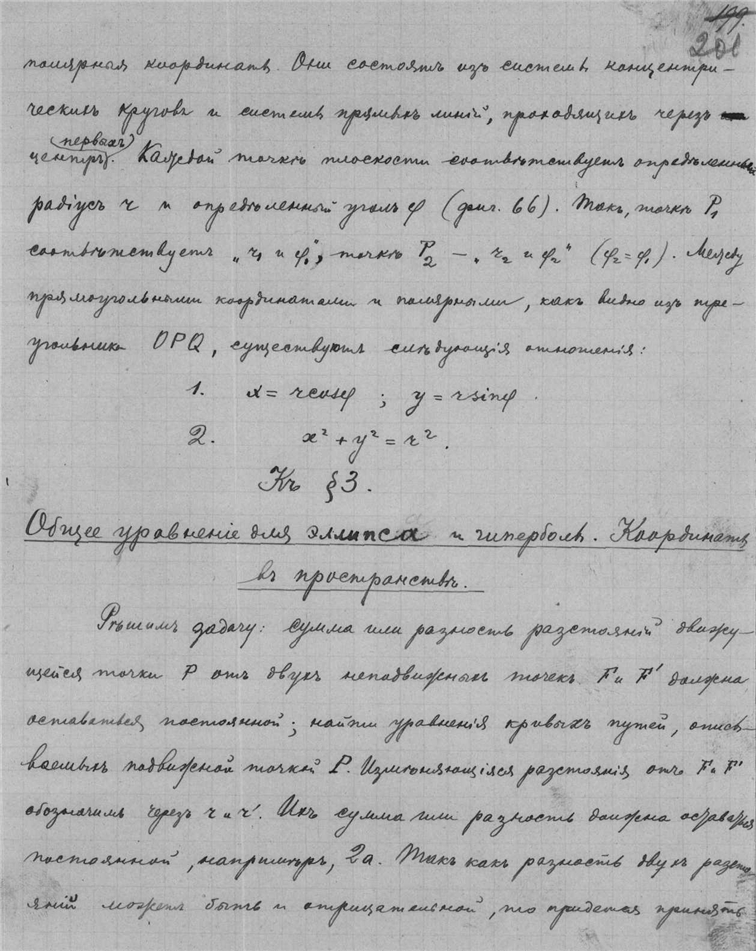 199.
201
полярныя координаты. Они состоятъ изъ системы концентри-
ческихъ круговъ и системы прямыхъ линій, проходящихъ черезъ
центръ первыхъ. Каждой точкѣ плоскости соотвѣтствуетъ опредѣленный
радіусъ r и опредѣленный уголъ φ (фиг. 66). Такъ, точкѣ P₁
соотвѣтствуетъ „r₁ и φ₁", точкѣ P₂ – „r₂ и φ₂" (φ₂=φ₁). Между
прямоугольными координатами и полярными, какъ видно изъ тре-
угольника OPQ, существуютъ слѣдующія отношенія:
1. x = r cosφ ; y = r sinφ.
2. x² + y² = r².
Къ §3.
Общее уравненіе для эллипса и гиперболы. Координаты
въ пространствѣ.
Рѣшимъ задачу: сумма или разность разстояній движу-
щейся точки P отъ двухъ неподвижныхъ точекъ F и F' должна
оставаться постоянной; найти уравненія кривыхъ путей, описы-
ваемыхъ подвижной точкой P. Измѣняющіяся разстоянія отъ F и F'
обозначимъ черезъ r и r'. Ихъ сумма или разность должна оставаться
постоянной, напримѣръ, 2a. Такъ какъ разность двухъ разсто-
яній можетъ быть и отрицательной, то придется принять